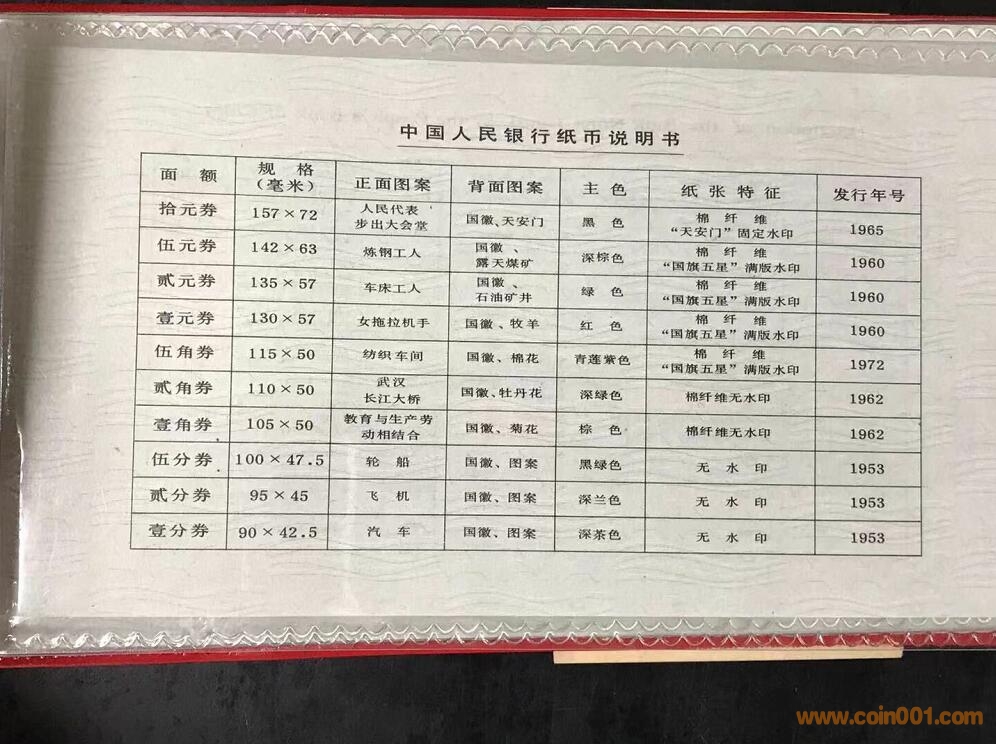 中国人民银行纸币说明书
面 额 规 格（毫米） 正面图案 背面图案 主 色 纸 张 特 征 发行年号
拾元券 157×72 人民代表步出大会堂 国徽、天安门 黑 色 棉 纤 维“天安门”固定水印 1965
伍元券 142×63 炼钢工人 国徽、露天煤矿 深棕色 棉 纤 维“国旗五星”满版水印 1960
贰元券 135×57 车床工人 国徽、石油矿井 绿 色 棉 纤 维“国旗五星”满版水印 1960
壹元券 130×57 女拖拉机手 国徽、牧羊 红 色 棉 纤 维“国旗五星”满版水印 1960
伍角券 115×50 纺织车间 国徽、棉花 青莲紫色 棉 纤 维“国旗五星”满版水印 1972
贰角券 110×50 武汉长江大桥 国徽、牡丹花 深绿色 棉纤维无水印 1962
壹角券 105×50 教育与生产劳动相结合 国徽、菊花 棕 色 棉纤维无水印 1962
伍分券 100×47.5 轮 船 国徽、图案 黑绿色 无 水 印 1953
贰分券 95×45 飞 机 国徽、图案 深兰色 无 水 印 1953
壹分券 90×42.5 汽 车 国徽、图案 深茶色 无 水 印 1953
www.coin001.com